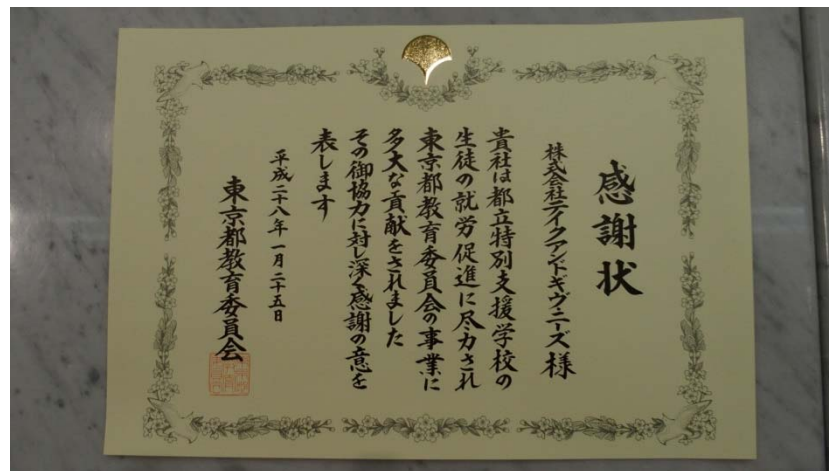 感謝状
株式会社テイクアンドギヴ・ニーズ様
貴社は都立特別支援学校の
生徒の就労促進に尽力され
東京都教育委員会の事業に
多大な貢献をされました
その御協力に対し深く感謝の意を
表します
平成二十八年一月二十五日
東京都教育委員会